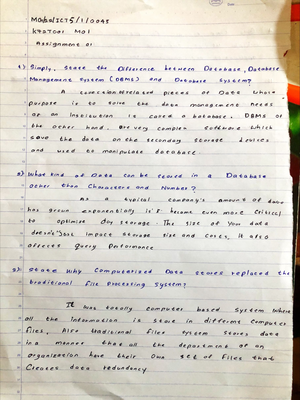 K427001 M01
Assignment 01
1) Simply, state the Difference between Database, Database
Management System (DBMS) and Database System?
A collection of related pieces of Data whose
purpose is to solve the data management needs
of an Institution is called a Database. DBMS on
the other hand, are very complex software which
save the data on the secondary storage Devices
and used to manipulate database.
2) What kind of Data can be stored in a Database
other than Characters and Number?
As a typical company's amount of data
has grown exponentially it's become even more critical
to optimise storage. The size of your data
doesn't just impact storage size and costs, it also
affects query Performance
3) State Why Computerised Data stores replaced the
traditional File processing system?
It was totally computer based system where
all the information is store in different computer
files, Also traditional Files system stores data
in a manner that all the department of an
organization have their own set of Files that
Creates data redundancy.